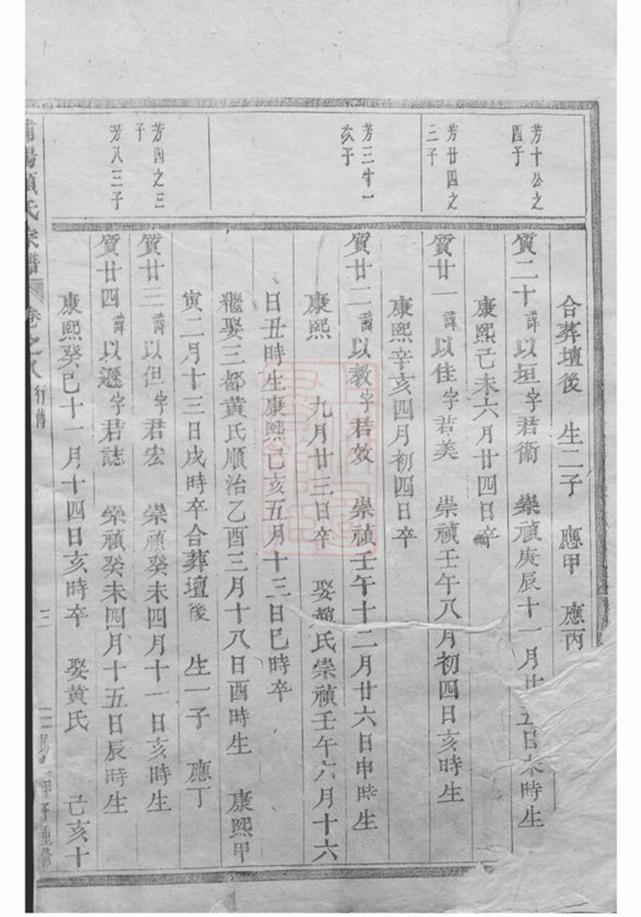 合葬壇後 生二子 應甲 應丙
芳十公之
四子
質二十諱以垣字君衛 崇禎庚辰十一月廿五日未時生
康熙己未六月廿四日卒
芳廿四之
三子
質廿一諱以佳字君美 崇禎壬午八月初四日亥時生
康熙辛亥四月初四日卒
芳三廿一
次子
質廿二諱以教字君效 崇禎壬午十二月廿六日申時生
康熙 九月廿三日卒 娶趙氏崇禎壬午六月十六
日丑時生康熙己亥五月十三日巳時卒
繼娶三都黄氏順治乙酉三月十八日酉時生 康熙甲
寅二月十三日戌時卒合葬壇後 生一子 應丁
芳四之三
子
質廿三諱以但字君宏 崇禎癸未四月十一日亥時生
芳八三子
質廿四諱以遜字君誌 崇禎癸未四月十五日辰時生
康熙癸巳十一月十四日亥時卒 娶黄氏 己亥十
項氏宗譜 卷之八 行傳 三 甲子重修